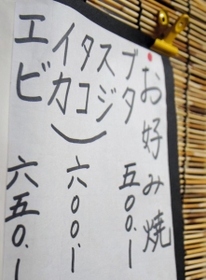 お好み焼
ブタ 五〇〇.ー
スジ
タコ
イカ
） 六〇〇.ー
エビ 六五〇.ー